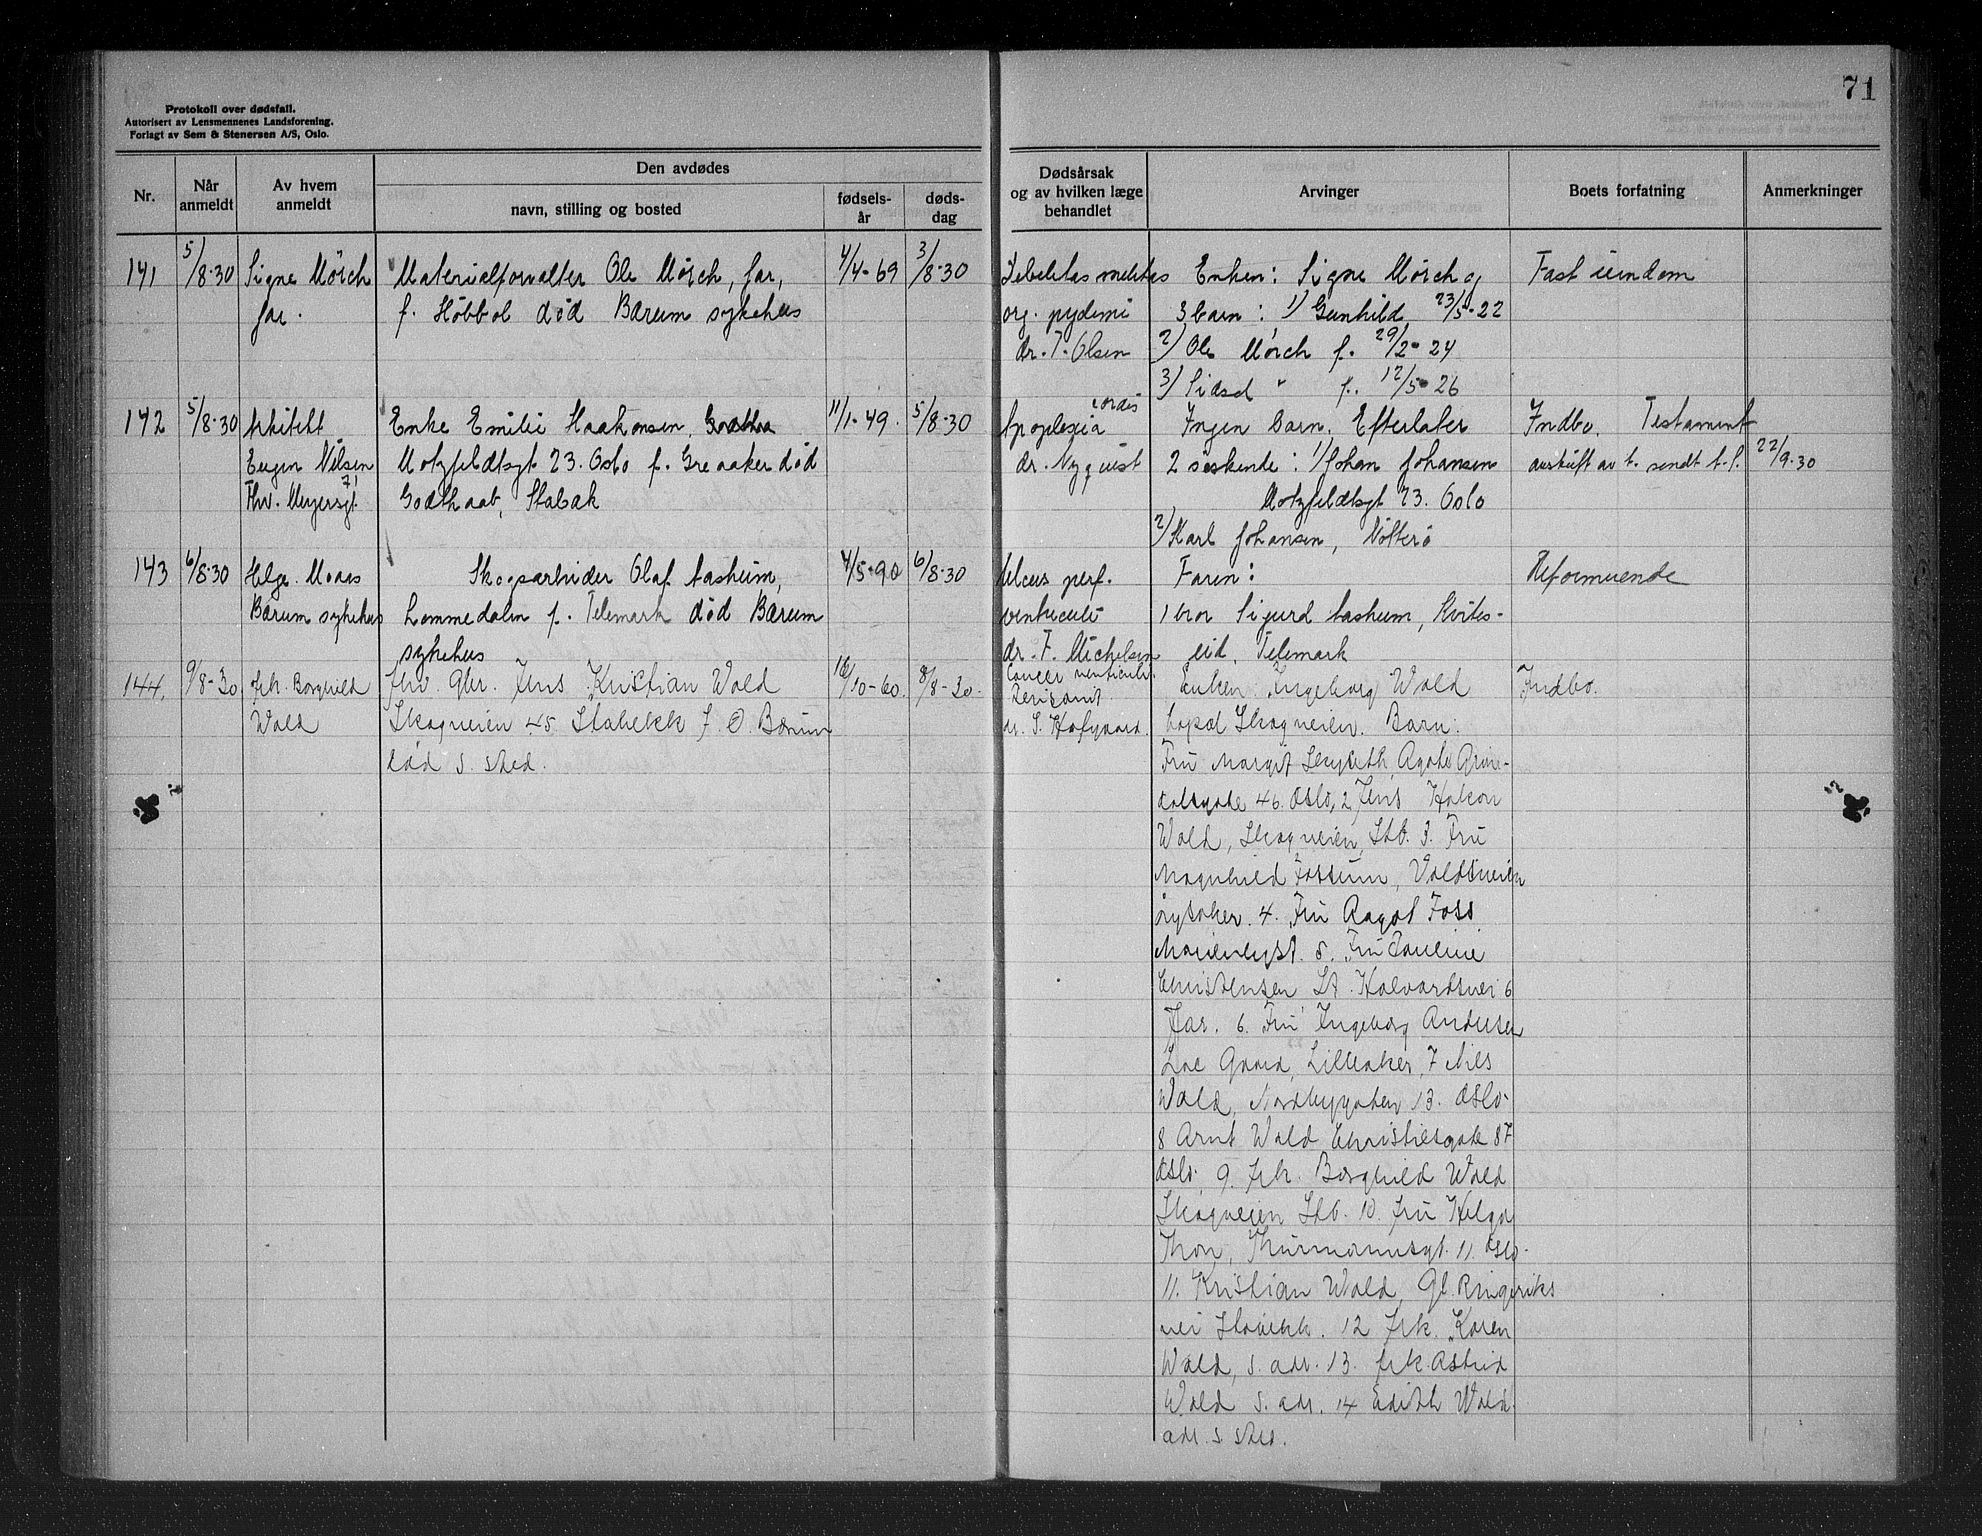 71
Protokoll over dødsfall.
Autorisert av Lensmennenes Landsforening.
Forlagt av Sem & Stenersen A/S, Oslo.
Nr.
Når anmeldt
Av hvem anmeldt
Den avdødes
navn, stilling og bosted
fødsels-år
døds-dag
Dødsårsak og av hvilken læge behandlet
Arvinger
Boets forfatning
Anmerkninger
141
5/8-30
Signe Mörch
Jar.
Materialforvalter Ole Mörch, Jar,
f. Höbböl död Bærum sykehus
4/4-69
3/8-30
org.
dr. T. Olsen
Enken: Signe Mörch og
3 barn: 1/ Gunhild 23/5-22
2/ Ole Mörch f. 29/2-24
3/ Sidsel " f. 12/5-26
Fast eiendom
142
5/8-30
Arkitekt
Eugen Nilsen
Thv. Meyersgt. 71
Enke Emilie Haakonsen,
Motzfeldtsgt 23. Oslo f. Greaaker död
Godthaab, Stabæk
11/1-49.
5/8-30
Apoplexia cordis
dr. Nyquist
Ingen barn. Efterlater
2 söskende: 1/ Johan Johansen
Motzfeldtsgt 23. Oslo
2/ Karl Johansen, Nötterö
Indbo. Testament
avskrift av t. sendt t. S.
22/9-30
143
6/8-30
Helge Moass
Bærum sykehus
Skogsarbeider Olaf Aasheim,
Lommedalen f. Telemark död Bærum
sykehus
4/5-90
6/8-30
Ulcus perf.
ventriculi
dr. F. Michelsen
Faren:
1 bror Sigurd Aasheim, Kvites-
eid, Telemark
Uformuende
144,
9/8-30
frk. Borghild
Wold
fhv. gbr. Jens Kristian Wold
Skogveien 45 Stabekk f. Ö. Bærum
död s. sted.
16/10-60.
8/8-30.
Cancer ventriculi.
dr. S. Hofgaard.
Enken Ingeborg Wold
bopæl Skogveien. Barn:
Fru Margit Agate Grön-
dalsgate 46. Oslo, 2 Jens Hakon
Wold, Skogveien, Stb. 3. Fru
Magnhild Fossum, Voldsveien
4. Fru Ragot Foss
Marienlyst. 5. Fru Pauline
Christensen St. Halvardsvei 6
Jar. 6. Fru Ingeborg Andersen
Gaard, Lilleaker, 7 Nils
Wold, Nordbygaten 13. Oslo.
8 Arnt Wold Christiesgate 87
Oslo. 9. frk. Borghild Wold
Skogveien Stb. 10. fru Helga
Thon, Thurmannsgt. 11. Oslo.
11. Kristian Wold, Gl. Ringeriks
vei Stabekk. 12 frk. Karen
Wold, s. adr. 13. frk. Astrid
Wold s. adr. 14 Edith Wold.
adr. s. sted.
Indbo.